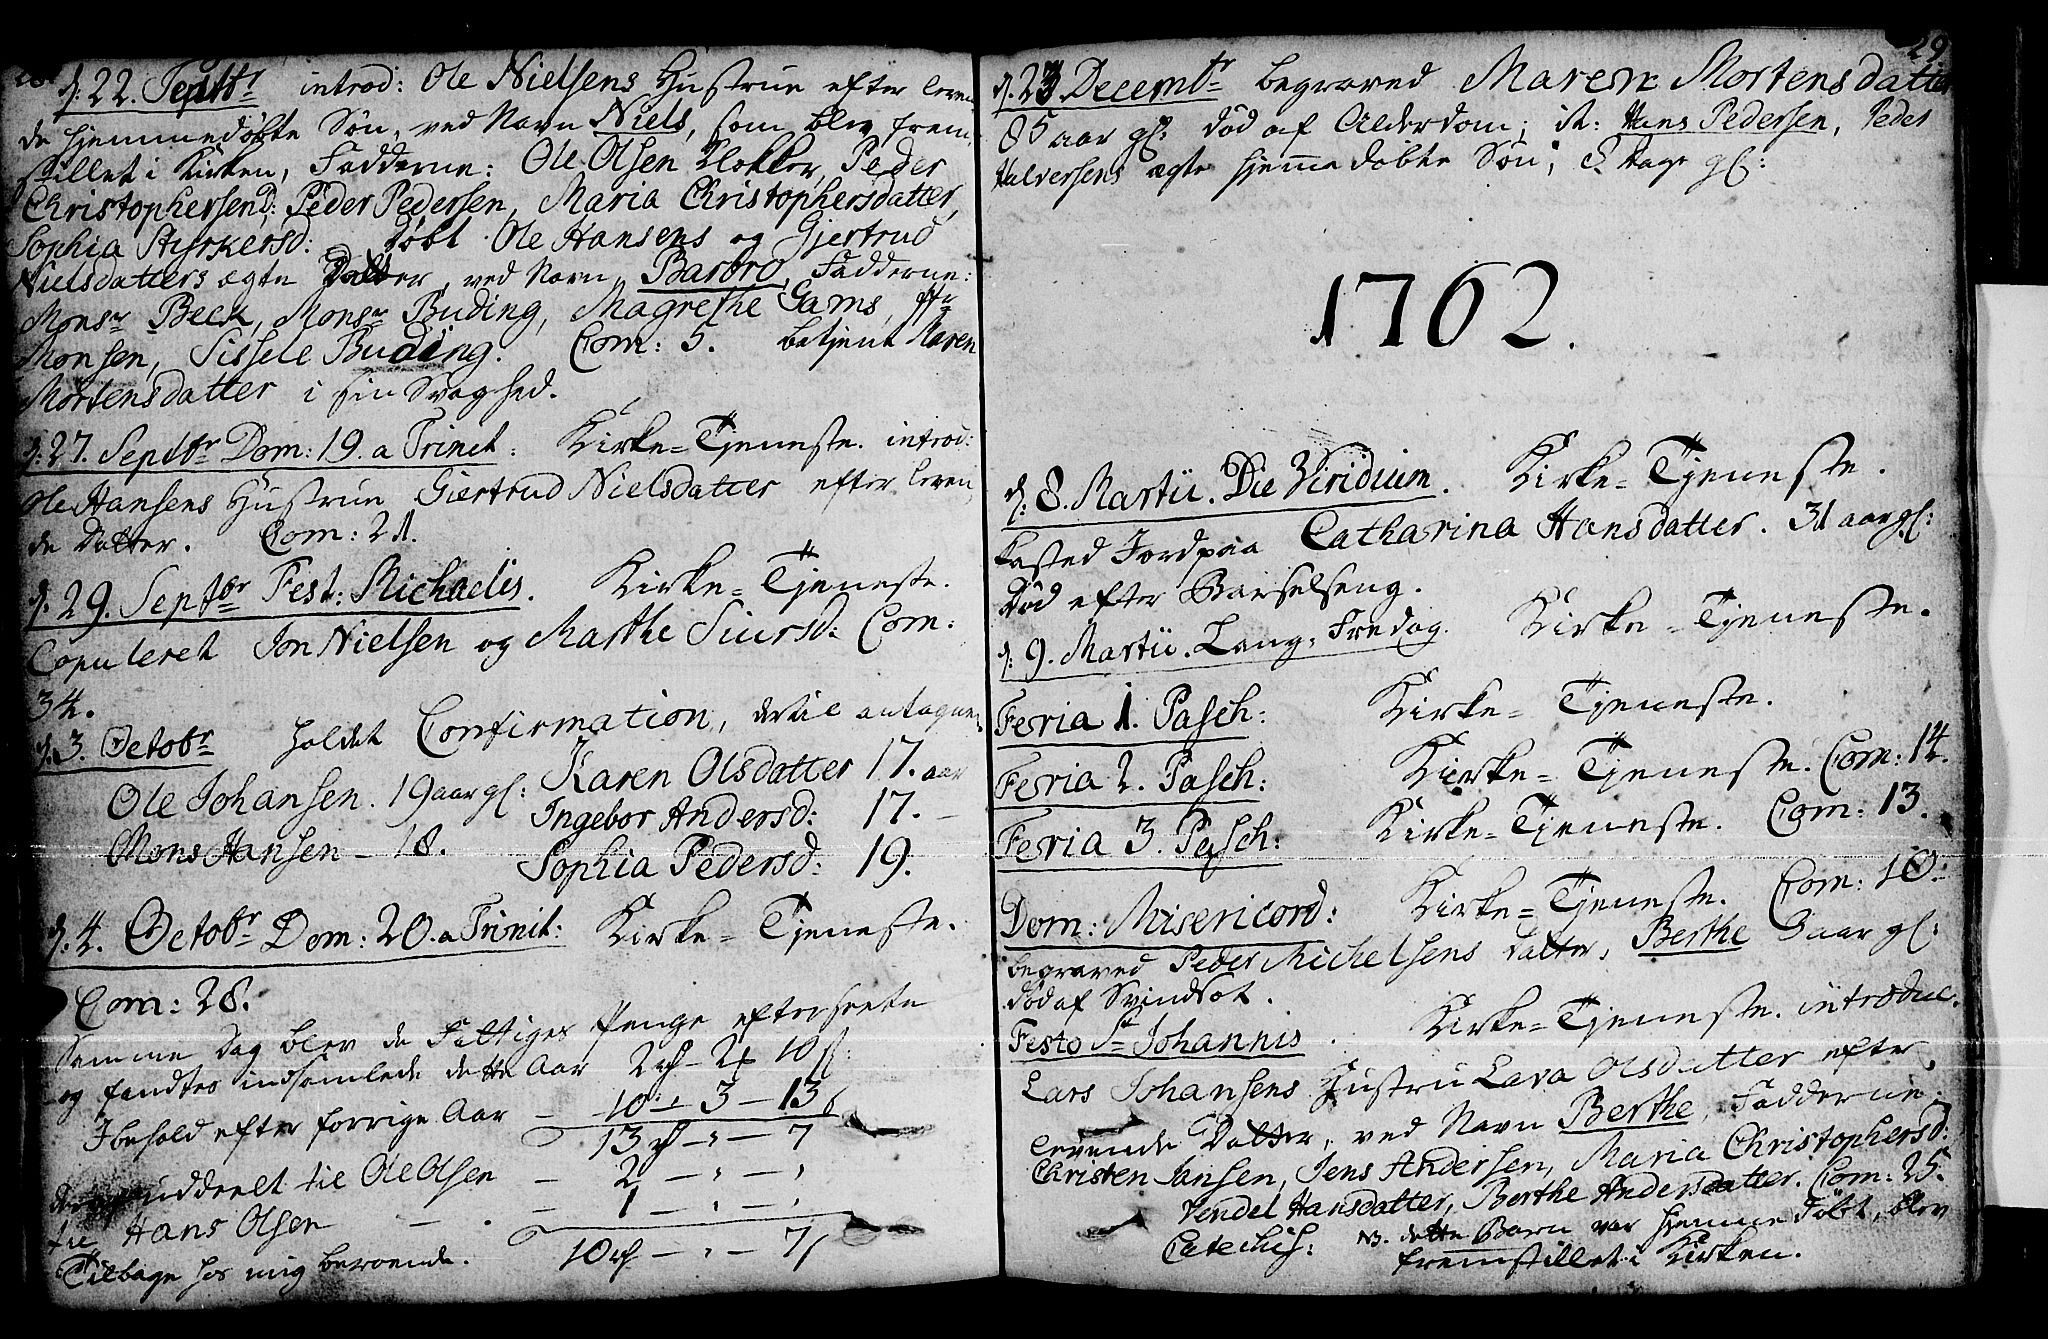 28.
d: 22. Septbr introd: Ole Nielsens Hustrue efter leven
de hjemmedøbte Søn, ved Navn Niels, som blev frem-
stillet i Kirken, Fadderne: Ole Olsen Klokker, Peder
Christophersen D: Peder Pedersen, Maria Christophersdatter,
Sophia Styrkersd: Døbt Ole Hansens og Gjertrud
Nielsdatters ægte Datter, ved Navn Barbro, Fadderne:
Monsr Beck, Monsr Buding, Magrethe Gams,
Monsen, Sissele Buding. Com: 5. betjent Maren
Mortensdatter i sin Svaghed.
d: 27. Septbr Dom: 19. a Trinit: Kirke=Tjeneste. introd:
Ole Hansens Hustrue Giertrud Nielsdatter efter leven
de Datter. Com: 21.
d: 29. Septbr Fest: Michaelis. Kirke=Tjeneste.
Copuleret Jon Nielsen og Marthe Siursd: Com:
34.
d. 3. Octobr holdet Confirmation, dertil antagne
Ole Johansen. 19 aar gl: Karen Olsdatter 17. aar
Mons Hansen – 18. Ingebor Andersd: 17. –
Sophia Pedersd: 19.
d. 4. Octobr Dom: 20. a Trinit: Kirke=Tjeneste.
Com: 28.
Samme Dag blev de Fattiges Penge efterseete
og fandtes indsamlede dette Aar 2 rd – 2 – 10 s:
I behold efter forrige Aar – 10 – 3 – 13
13 rd – " – 7
uddeelt til Ole Olsen – 2 – " – "
til Hans Olsen – 1 – " – "
Tilbage hos mig beroende. 10 rd – " – 7
29
d. 23 Decembr begraved Maren Mortensdatter
85 aar gl: død af Alderdom; it: Hans Pedersen, Peder
Halversens ægte hjemmedøbte Søn, 8 dage gl:
1762.
d: 8. Martii. Die Viridium. Kirke=Tjeneste.
kasted Jord paa Catharina Hansdatter. 31 aar gl:
Død efter Barselseng.
d: 9. Martii. Lang=Fredag. Kirke=Tjeneste.
Feria 1. Pasch: Kirke=Tjeneste.
Feria 2. Pasch: Kirke=Tjeneste. Com: 14.
Feria 3. Pasch: Kirke=Tjeneste. Com: 13.
Dom: Misericord: Kirke=Tjeneste. Com: 10.
begraved Peder Michelsens Datter, Berthe 3 aar gl:
død af Svindsot.
Festo St Johannis. Kirke=Tjeneste. introduc.
Lars Johansens Hustru Lava Olsdatter efter
levende Datter, ved Navn Berthe, Fadderne
Christen Jansen, Jens Andersen, Maria Christophersd:
Vendel Hansdatter, Berthe Andersdatter. Com: 25.
Catechis: NB. dette Barn var hjemmedøbt, blev
fremstillet i Kirken.